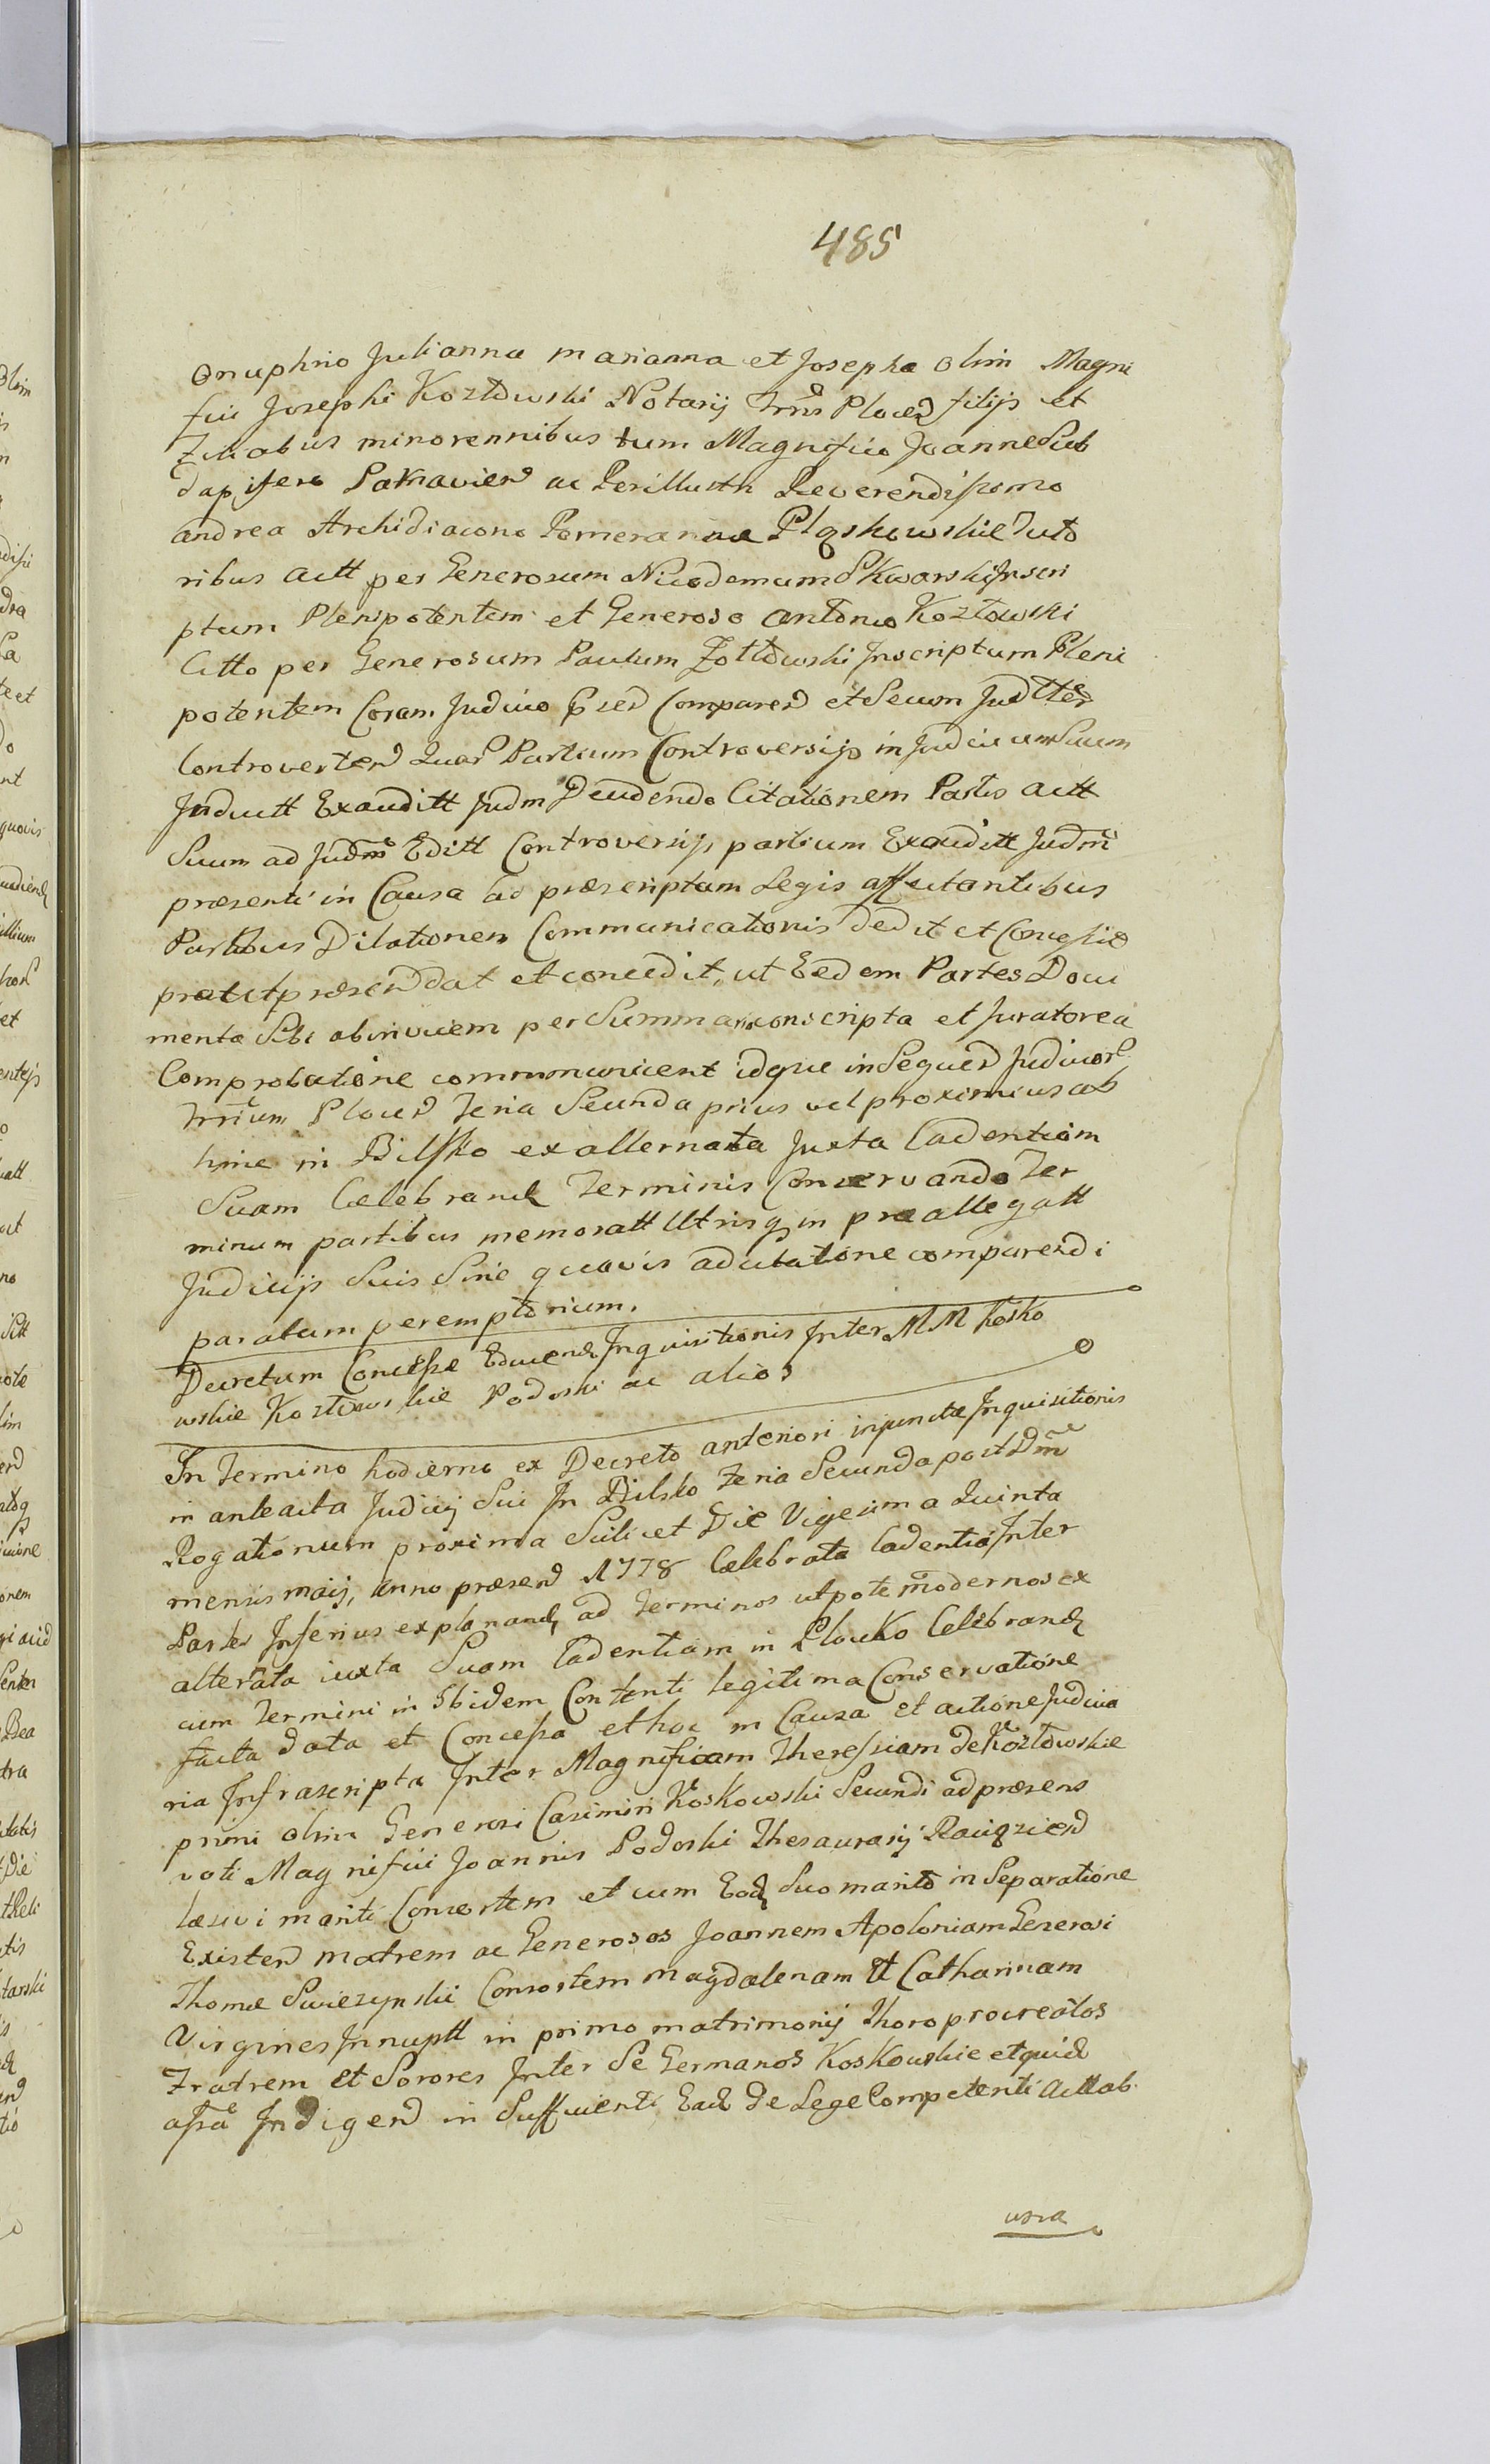 485
Onuphrio Julianna Marianna et Josepha olim Magni
fici Josephi Kozłowski Notarij Trris Plocen filijs et
Filiabus minorennibus tum Magnifico Joanne Sub
dapifero ac Perillustri Reverendissimo
Andrea Archidiacono Pomeraniae Pląskowskie Tuto
ribus Actt per Generosum Nicodemum Skwarski Inscri
ptum Plenipotentem et Generoso Antonio Kozłowski
Citto per Generosum Paulum Żołtowski Inscriptum Pleni
potentem Coram Judicio Comparen et Secum
Controverten Quar Partium Controversijs in Judicium Suum
Inductt Exauditt Judm Deudendo Citationem Partis Actt
Suum ad Judm Editt Controversijs partium Exauditt Judm
praesenti in Causa ad praescriptam Legis affectantibus
Partibus Dilationem Communicationis dedit et Concessit
prout et praesen dat et concedit, ut Eadem Partes Docu
menta Sibi abinvicem per Summaria conscripta et Juratorea
Comprobatione communicent idque in Sequen Judicior
Trrium Plocen Feria Secunda prius vel proximius ab
hinc in Bilsko ex alternata Juxta Cadentiam
Suam Celebrand Terminis Conservando Ter
minum partibus memoratt Utrisq in praeallegatt
Judicijs Suis Sine quavis adcitatione comparendi
paratum peremptorium.
Decretum Concessae Educend Inquisitionis Inter MM Kosko
wskie Kozłowskie Podoski ac alios
In Termino hodierno ex Decreto anteriori injunctae Inquisitionis
in anteacta Judicij Sui In Bilsko Feria Secunda post Dm
Rogationum proxima Scilicet Die Vigesima Quinta
mensis Maij, Anno praesen 1778 Celebrata Cadentia Inter
Partes Inferius explanand ad Terminos utpote modernos ex
alterata iuxta Suam Cadentiam in Płocko Celebrand
cum Termini in Ibidem Contenti legitima Conservatione
facta data et Concessa et hoc in Causa et actione Judicia
ria Infrascripta Inter Magnificam Theressiam de Kozłowskie
primi olim Generosi Casimiri Koskowski Secundi ad praesens
voti Magnifici Joannis Podoski Thesaurarij Raciązien
Laesivi mariti Consortem et cum Eod Suo marito in Separatione
Existen matrem ac Generosos Joannem Apoloniam Generosi
Thomae Swiezynski Consortem Magdalenam Et Catharinam
Virgines Innuptt in primo matrimonij thoro procreatos
Fratrem Et Sorores Inter Se Germanos Koskowskie et quid
assa Indigen in Sufficienti Ead de Lege Competenti Actt ab
una